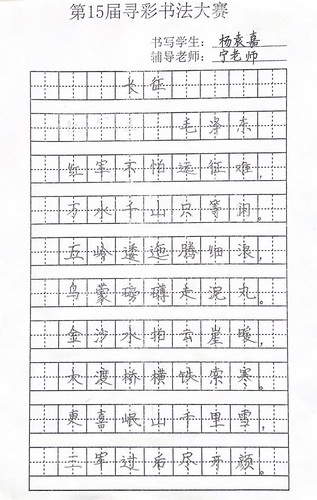 第15届寻彩书法大赛
书写学生：杨袁嘉
辅导老师：宁老师
长征
毛泽东
红军不怕远征难，
万水千山只等闲。
五岭逶迤腾细浪，
乌蒙磅礴走泥丸。
金沙水拍云崖暖，
大渡桥横铁索寒。
更喜岷山千里雪，
三军过后尽开颜。